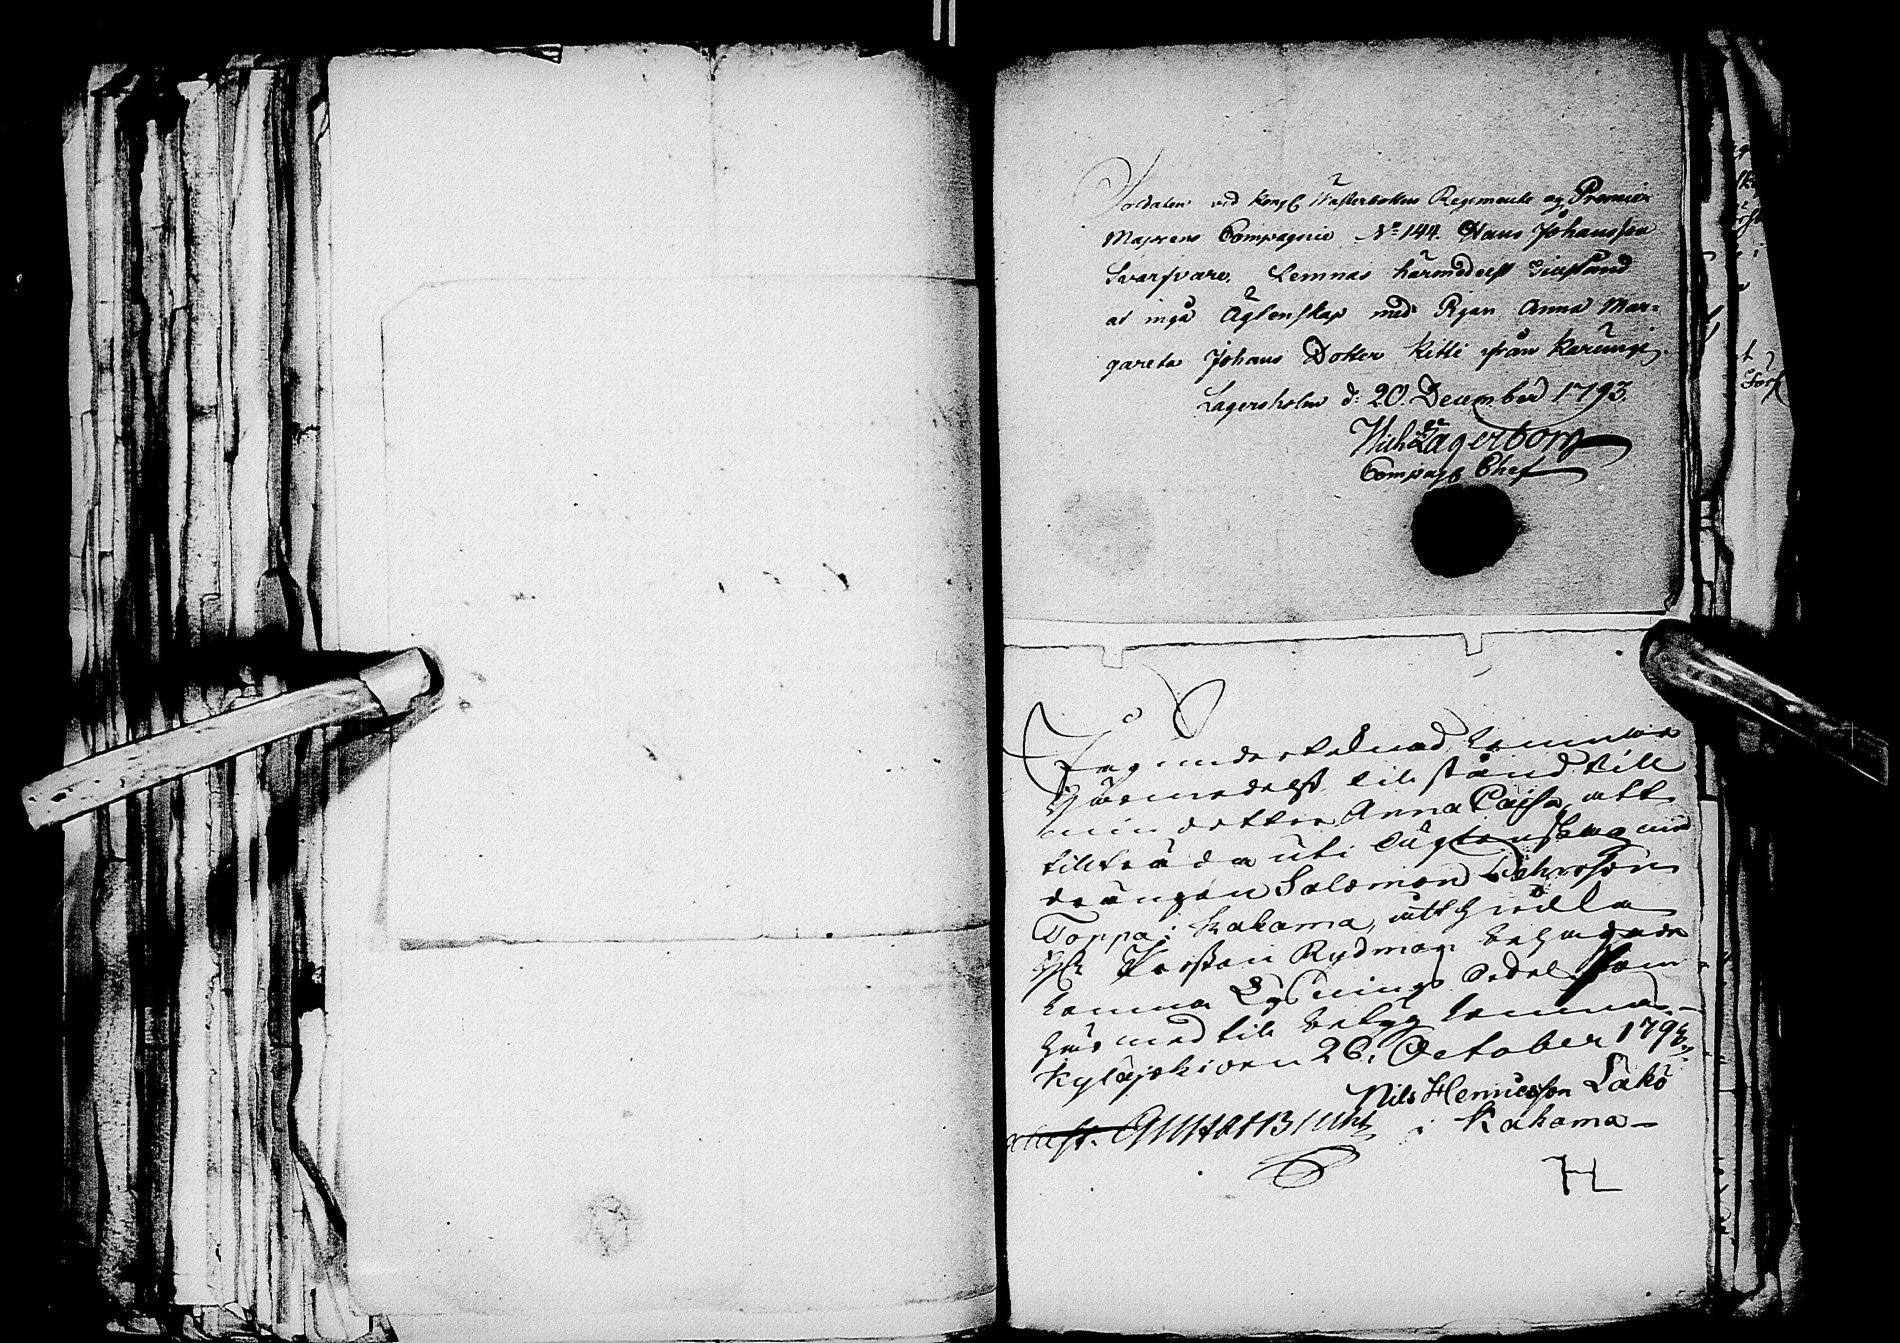 Soldaten vid Kongl Wästerbottens Regemente og Premier
Majorens Compagnie No 144. Hans Johansson
Svarfvare, Lemnas härmedelst tilstånd
at ingå Ägtenskap med Pigan Anna Mar-
gareta Johans Dotter Kitti från Karungi.
Lagersholm d: 20. December 1793.
Lagerborg
Compag Chef
Jag undertecknad Lemnar
härmedelst tilstånd till
min dotter Anna Cajsa att
tillträda uti ägtenskap med
drängen Salomon
Toppa i Kakama, att
H Pastor Rydman behagade
Lemna Lysnings Sedel, som
här med til betyg Lemnas
26. October 1793.
Nils Henricsson Lakö
i Kakama
H